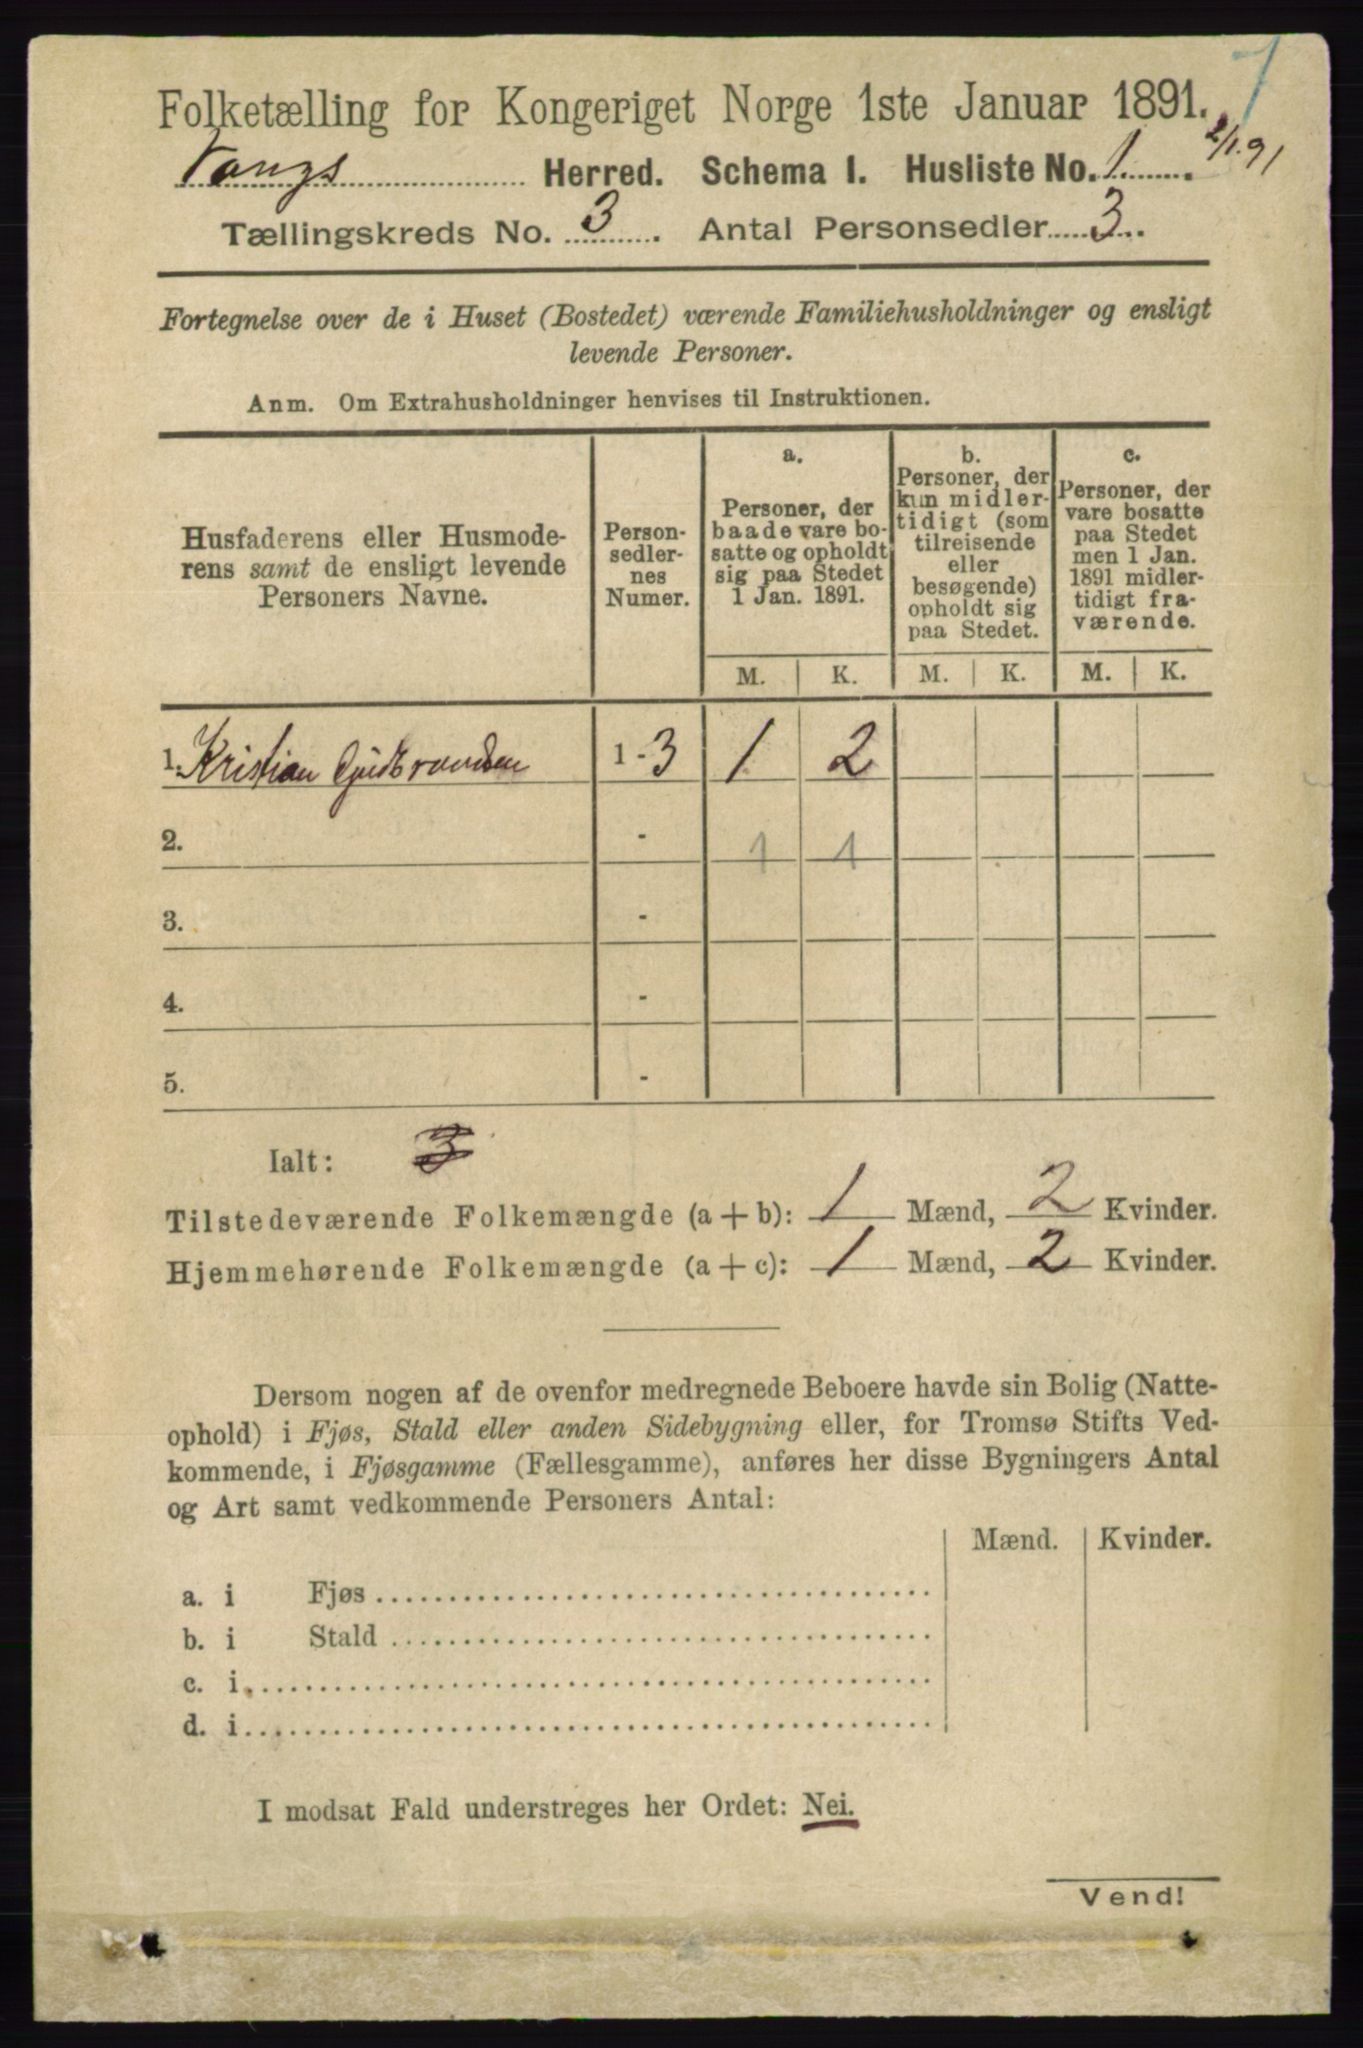 Folketælling for Kongeriget Norge 1ste Januar 1891.
Vangs Herred. Schema I. Husliste No. 1. 2/1.91
Tællingskreds No. 3. Antal Personsedler 3.
Fortegnelse over de i Huset (Bostedet) værende Familiehusholdninger og ensligt
levende Personer.
Anm. Om Extrahusholdninger henvises til Instruktionen.
Husfaderens eller Husmode-
rens samt de ensligt levende
Personers Navne.
Person-
sedler-
nes
Numer.
a.
Personer, der
baade vare bo-
satte og opholdt
sig paa Stedet
1 Jan. 1891.
b.
Personer, der
kun midler-
tidigt (som
tilreisende
eller
besøgende)
opholdt sig
paa Stedet.
c.
Personer, der
vare bosatte
paa Stedet
men 1 Jan.
1891 midler-
tidigt fra-
værende.
M. K. M. K. M. K.
1. Kristian Gudbrandsen 1-3 1 2
2. - 1 1
3. -
4. -
5. -
Ialt: 3
Tilstedeværende Folkemængde (a + b): 1 Mænd, 2 Kvinder.
Hjemmehørende Folkemængde (a + c): 1 Mænd, 2 Kvinder.
Dersom nogen af de ovenfor medregnede Beboere havde sin Bolig (Natte-
ophold) i Fjøs, Stald eller anden Sidebygning eller, for Tromsø Stifts Ved-
kommende, i Fjøsgamme (Fællesgamme), anføres her disse Bygningers Antal
og Art samt vedkommende Personers Antal:
Mænd. Kvinder.
a. i Fjøs
b. i Stald
c. i
d. i
I modsat Fald understreges her Ordet: Nei.
Vend!